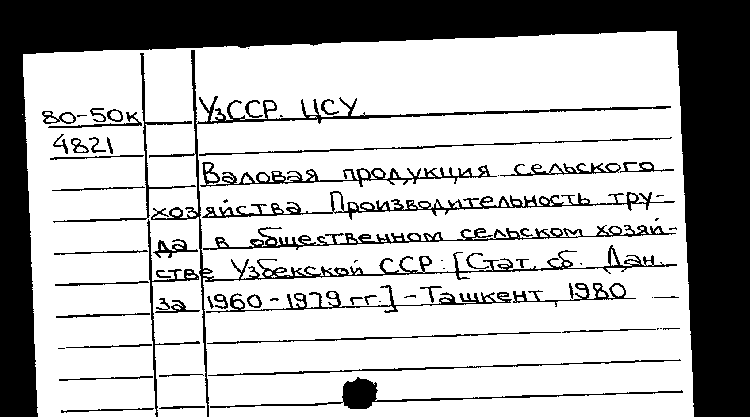 80-50к УзССР. ЦСУ.
4821
Валовая продукция сельского
хозяйства. Производительность тру-
да в общественном сельском хозяй-
стве Узбекской ССР: [Стат. сб. Дан.
за 1960-1979 гг.] - Ташкент, 1980